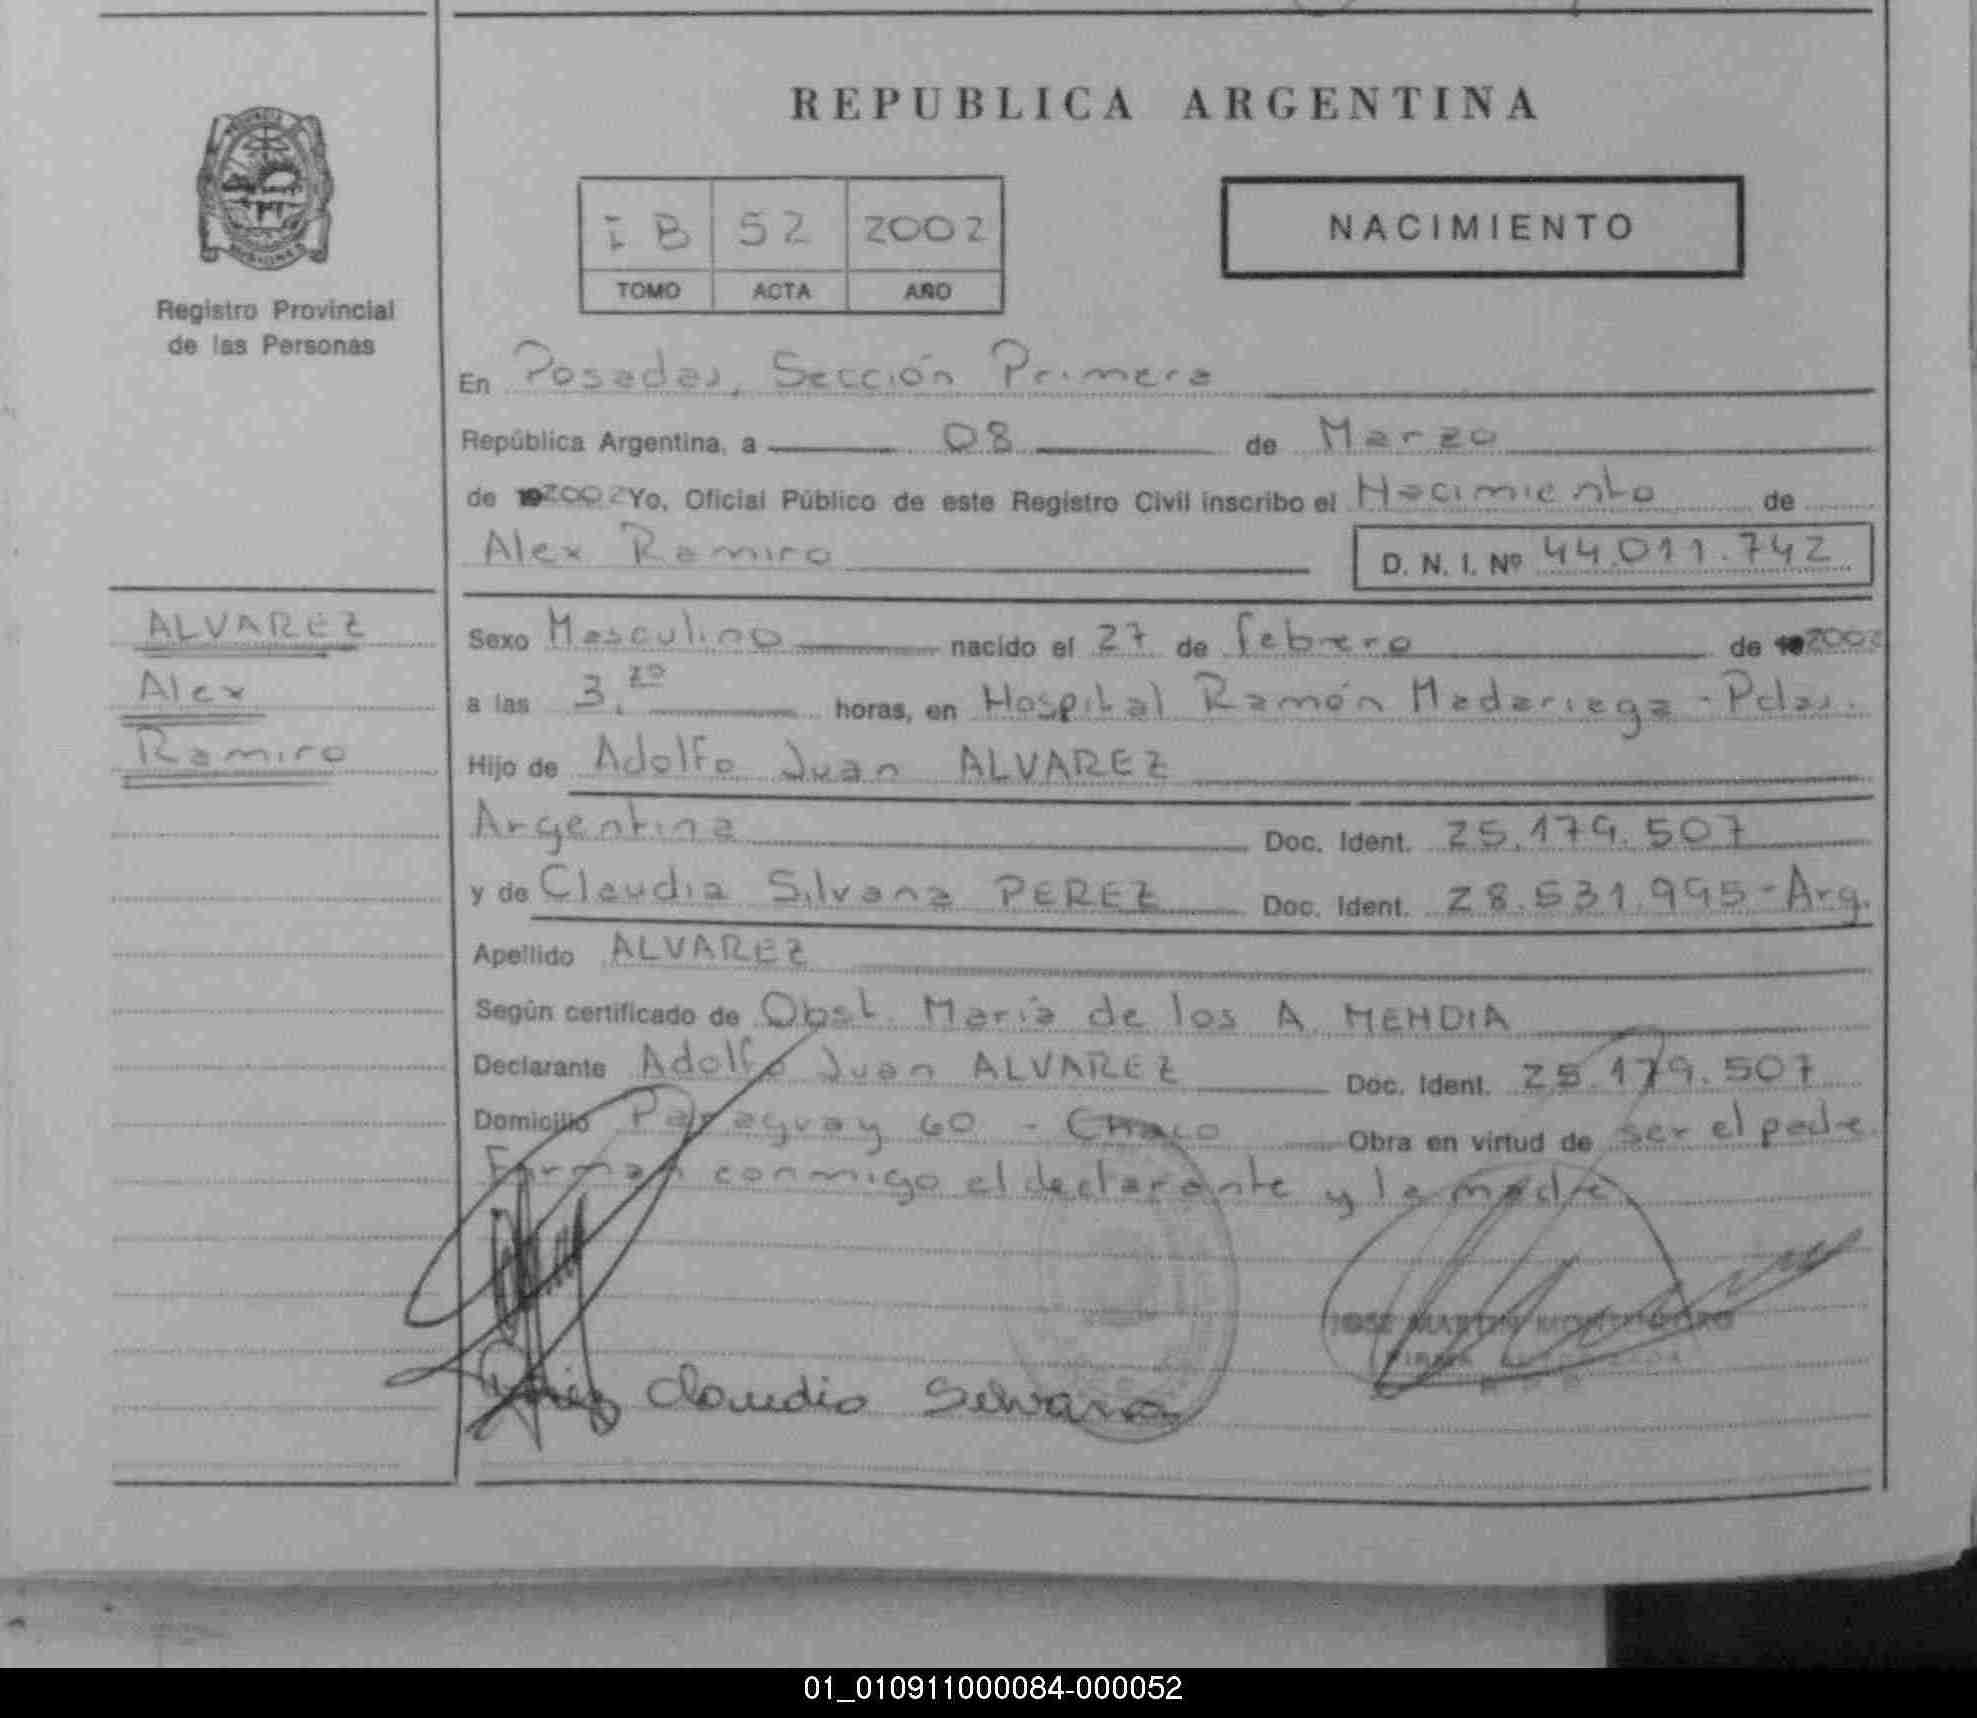 REPUBLICA ARGENTINA
I B 52 2002
TOMO ACTA AÑO
NACIMIENTO
Registro Provincial
de las Personas
En Posadas, Sección Primera
República Argentina, a 08 de Marzo
de 192002 Yo, Oficial Público de este Registro Civil inscribo el Nacimiento de
Alex Ramiro D. N. I. Nº 44.011.742
ALVAREZ
Alex
Ramiro
Sexo Masculino nacido el 27 de febrero de 192002
a las 3,20 horas, en Hospital Ramón Madariaga - Pdas.
Hijo de Adolfo Juan ALVAREZ
Argentina Doc. Ident. 25.179.507
y de Claudia Silvana PEREZ Doc. Ident. 28.531.995-Arg.
Apellido ALVAREZ
Según certificado de Obst. María de los A. MENDIA
Declarante Adolfo Juan ALVAREZ Doc. Ident. 25.179.507
Domicilio Paraguay 60 - Obra en virtud de ser el padre.
Firman conmigo el declarante y la madre
JOSE
Claudia Silvana
01_010911000084-000052